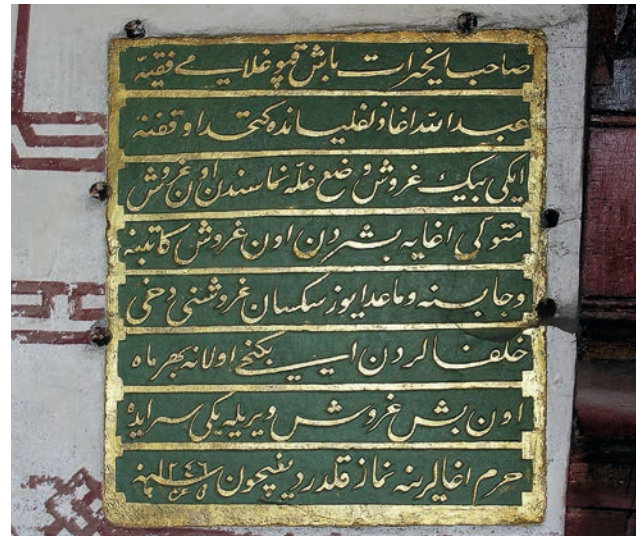 صاحب الخيرات باش قپو غلامى فقيه
عبد الله اغا ذلفليانده كتخدا وقفنه
ايكى بيك غروش وضع غله نماسندن اون غروش
متوكى اغايه بشردن اون غروش كاتبنه
وجابسنه وماعدا يوز سكسان غروشنى دخى
خلفالردن ايكنجى اولانه بهر ماه
اون بش غروش ويريله يكى سرايده
حرم اغالرينه نماز قلدرديغيچون سنه ١٢٤٦